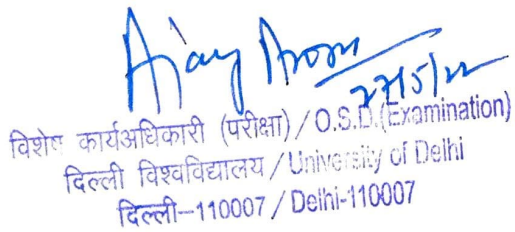 Ajay Arora
27/5/22
विशेष कार्यअधिकारी (परीक्षा) / O.S.D.(Examination)
दिल्ली विश्वविद्यालय / University of Delhi
दिल्ली–110007 / Delhi-110007